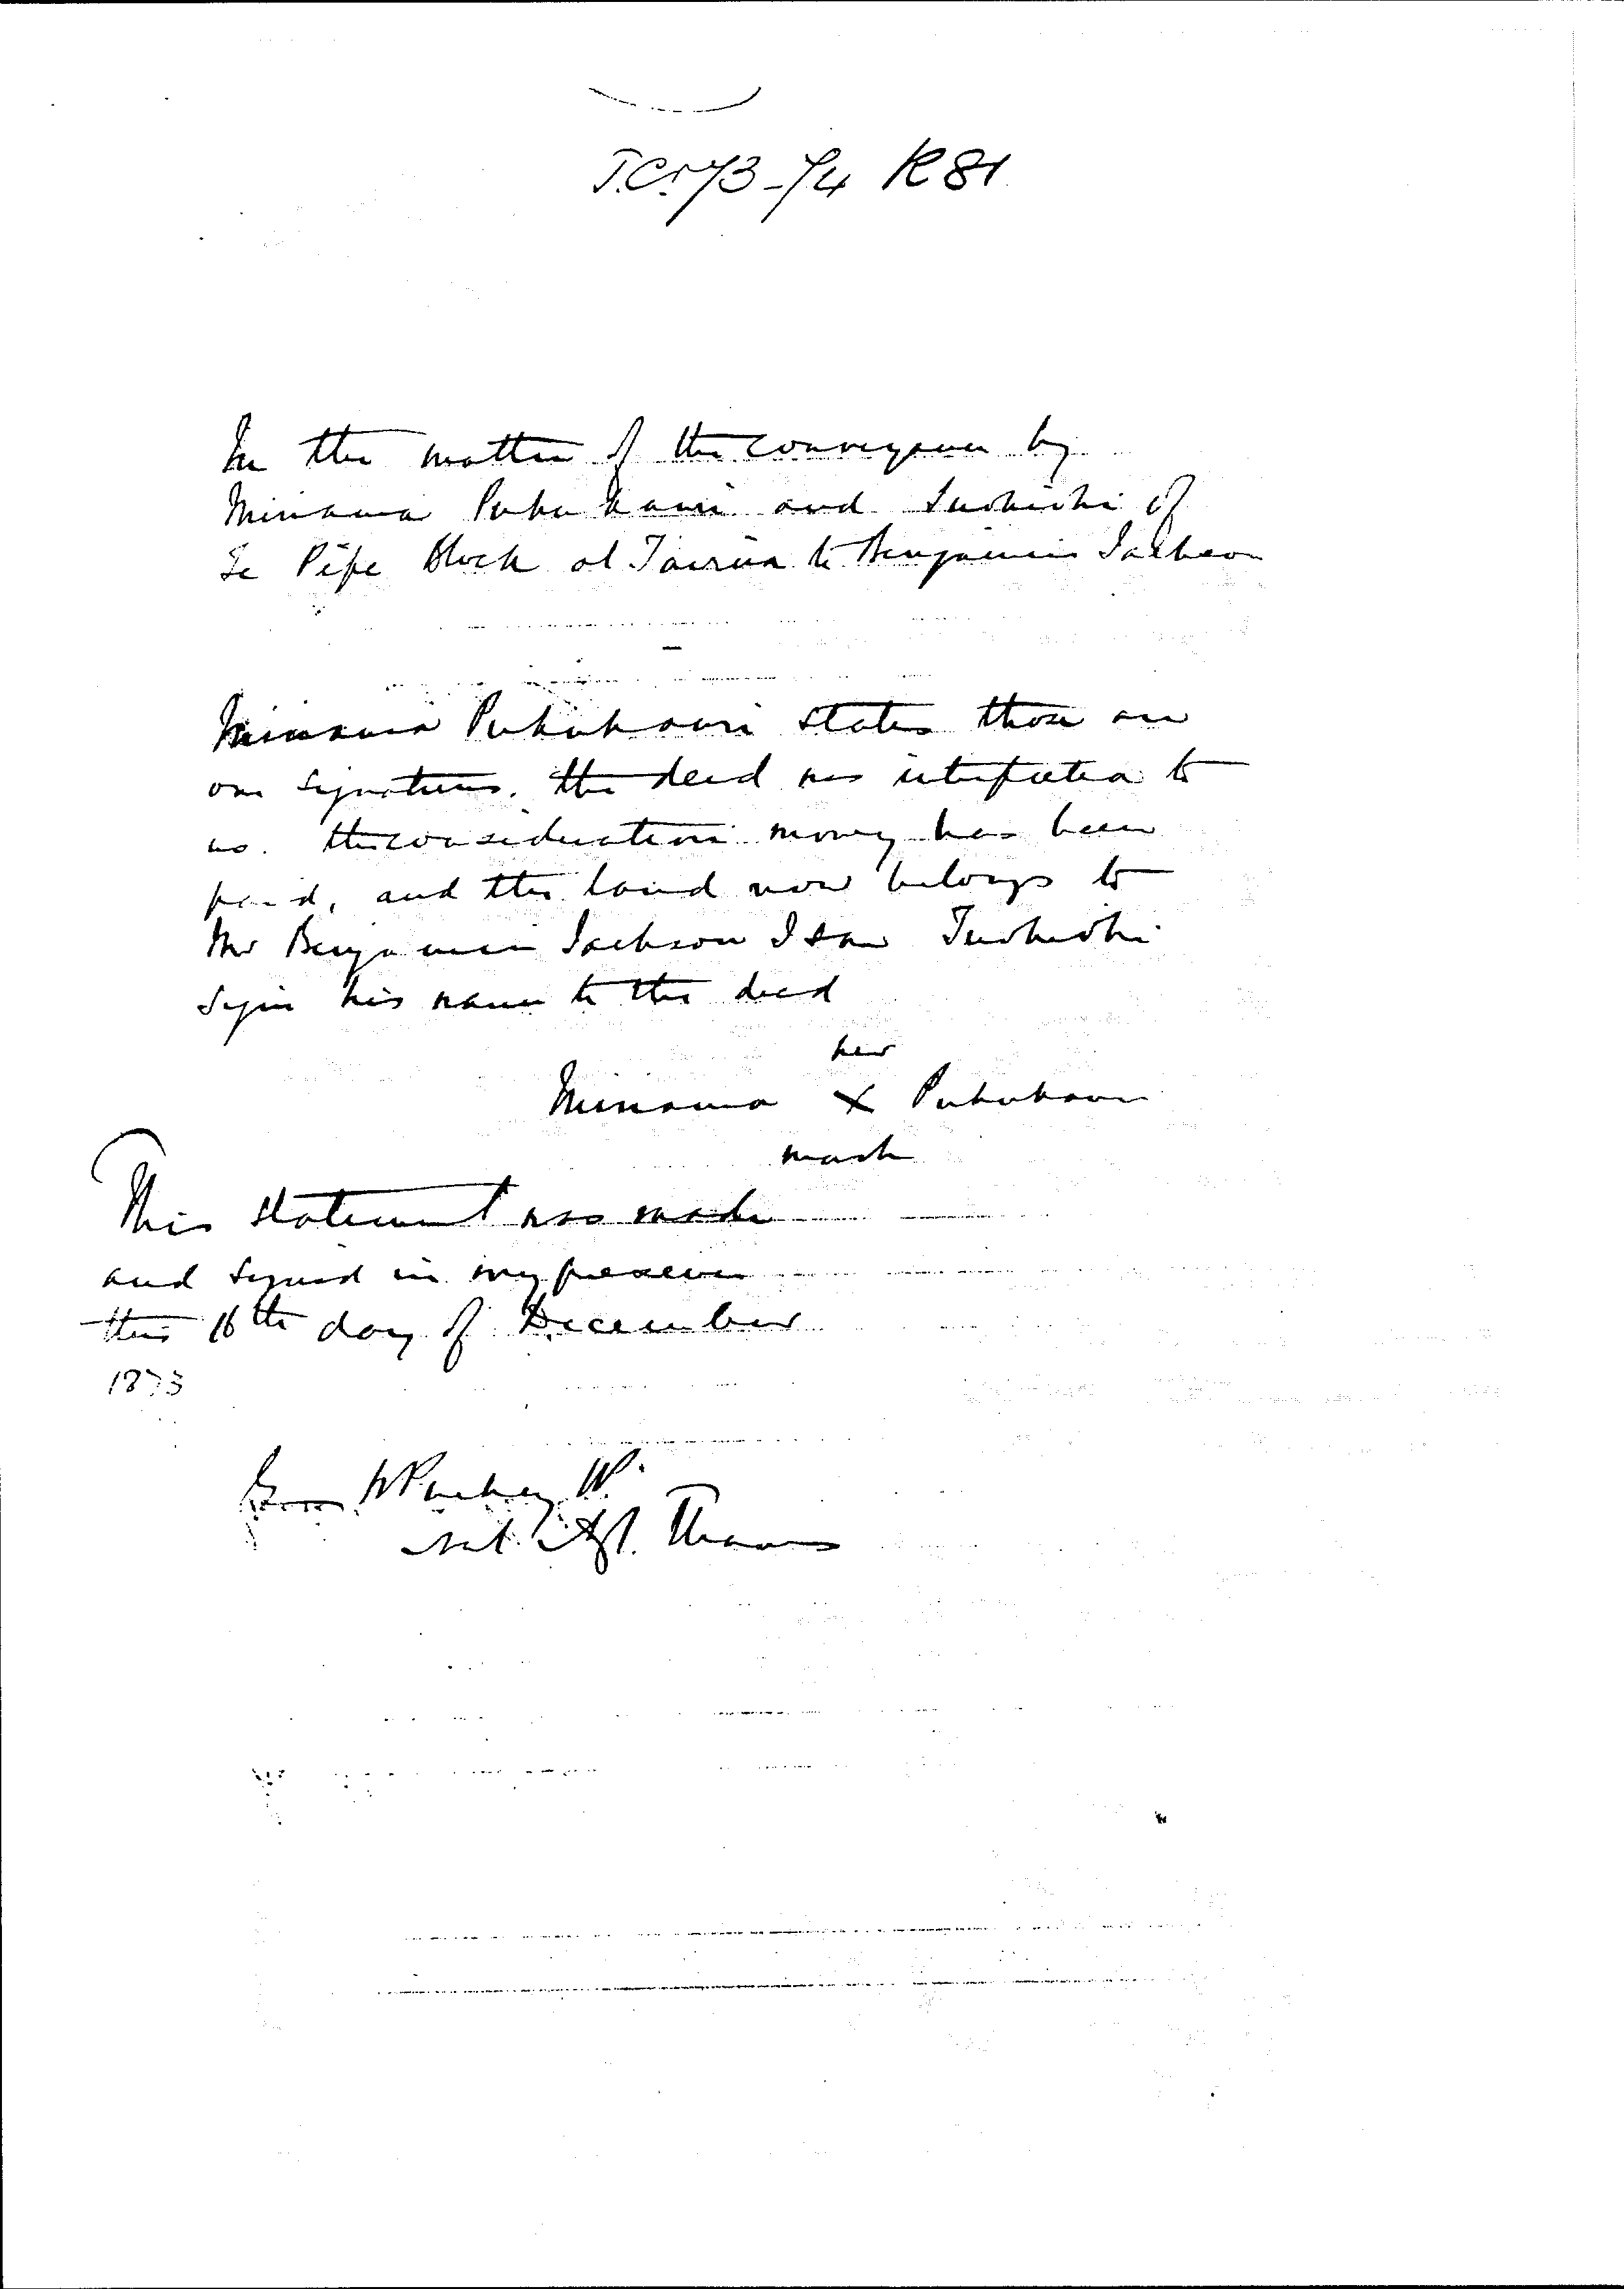 T.C. 73-74 R 81
In the matter of the conveyance by
Minama Pukukauri and Tuohiohi of
Te Pipe Block at Tairua to Benjamin Jackson
Minama Pukukauri states those are
our signatures. the deed was interpreted to
us. the consideration money has been
paid, and the land now belongs to
Mr Benjamin Jackson I saw
sign his name to the deed
her
Minama X Pukukauri
mark
This statement was made
and signed in my presence
this 16th day of December
1873
Nat. Agt. Thames